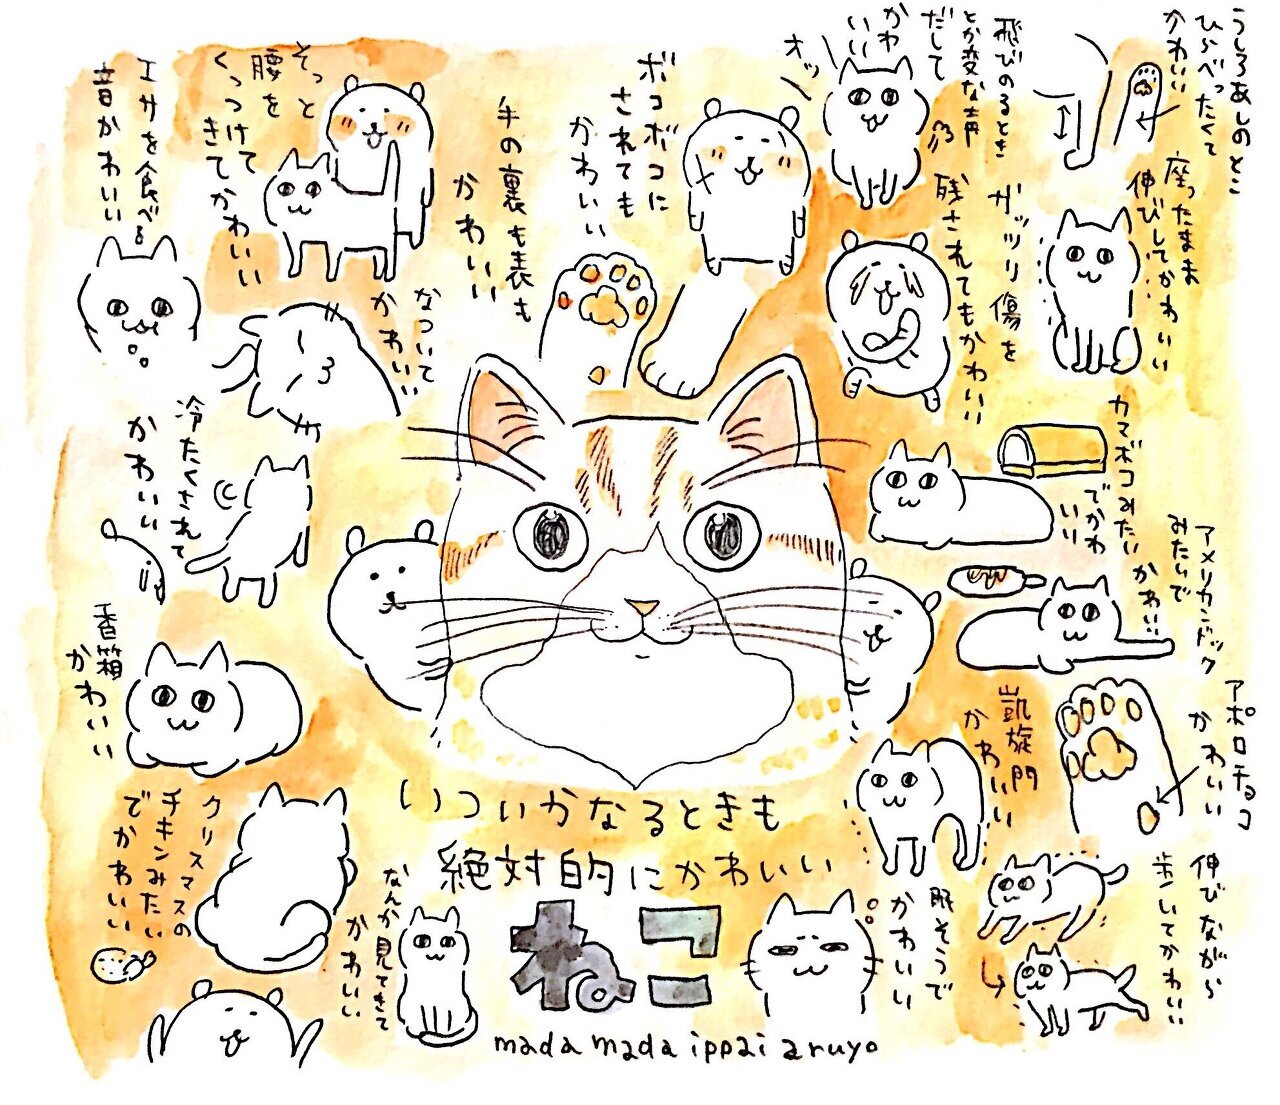 うしろあしのとこ
ひらべったくて
かわいい
飛びのるとき
とか変な声
だして
かわ
いい
オッ
ボコボコに
されても
かわいい
そっと
腰を
くっつけて
きてかわいい
エサを食べる
音かわいい
座ったまま
伸びしてかわいい
ガッツリ傷を
残されてもかわいい
手の裏も表も
かわいい
なついて
かわいい
冷たくされて
かわいい
カマボコみたい
でかわ
いい
アメリカンドック
みたいで
かわいい
香箱
かわいい
凱旋門
かわいい
アポロチョコ
かわいい
いついかなるときも
絶対的にかわいい
ねこ
mada mada ippai aruyo
クリスマスの
チキンみたい
でかわいい
なんか見てきて
かわいい
眠そうで
かわいい
伸びながら
歩いてかわいい